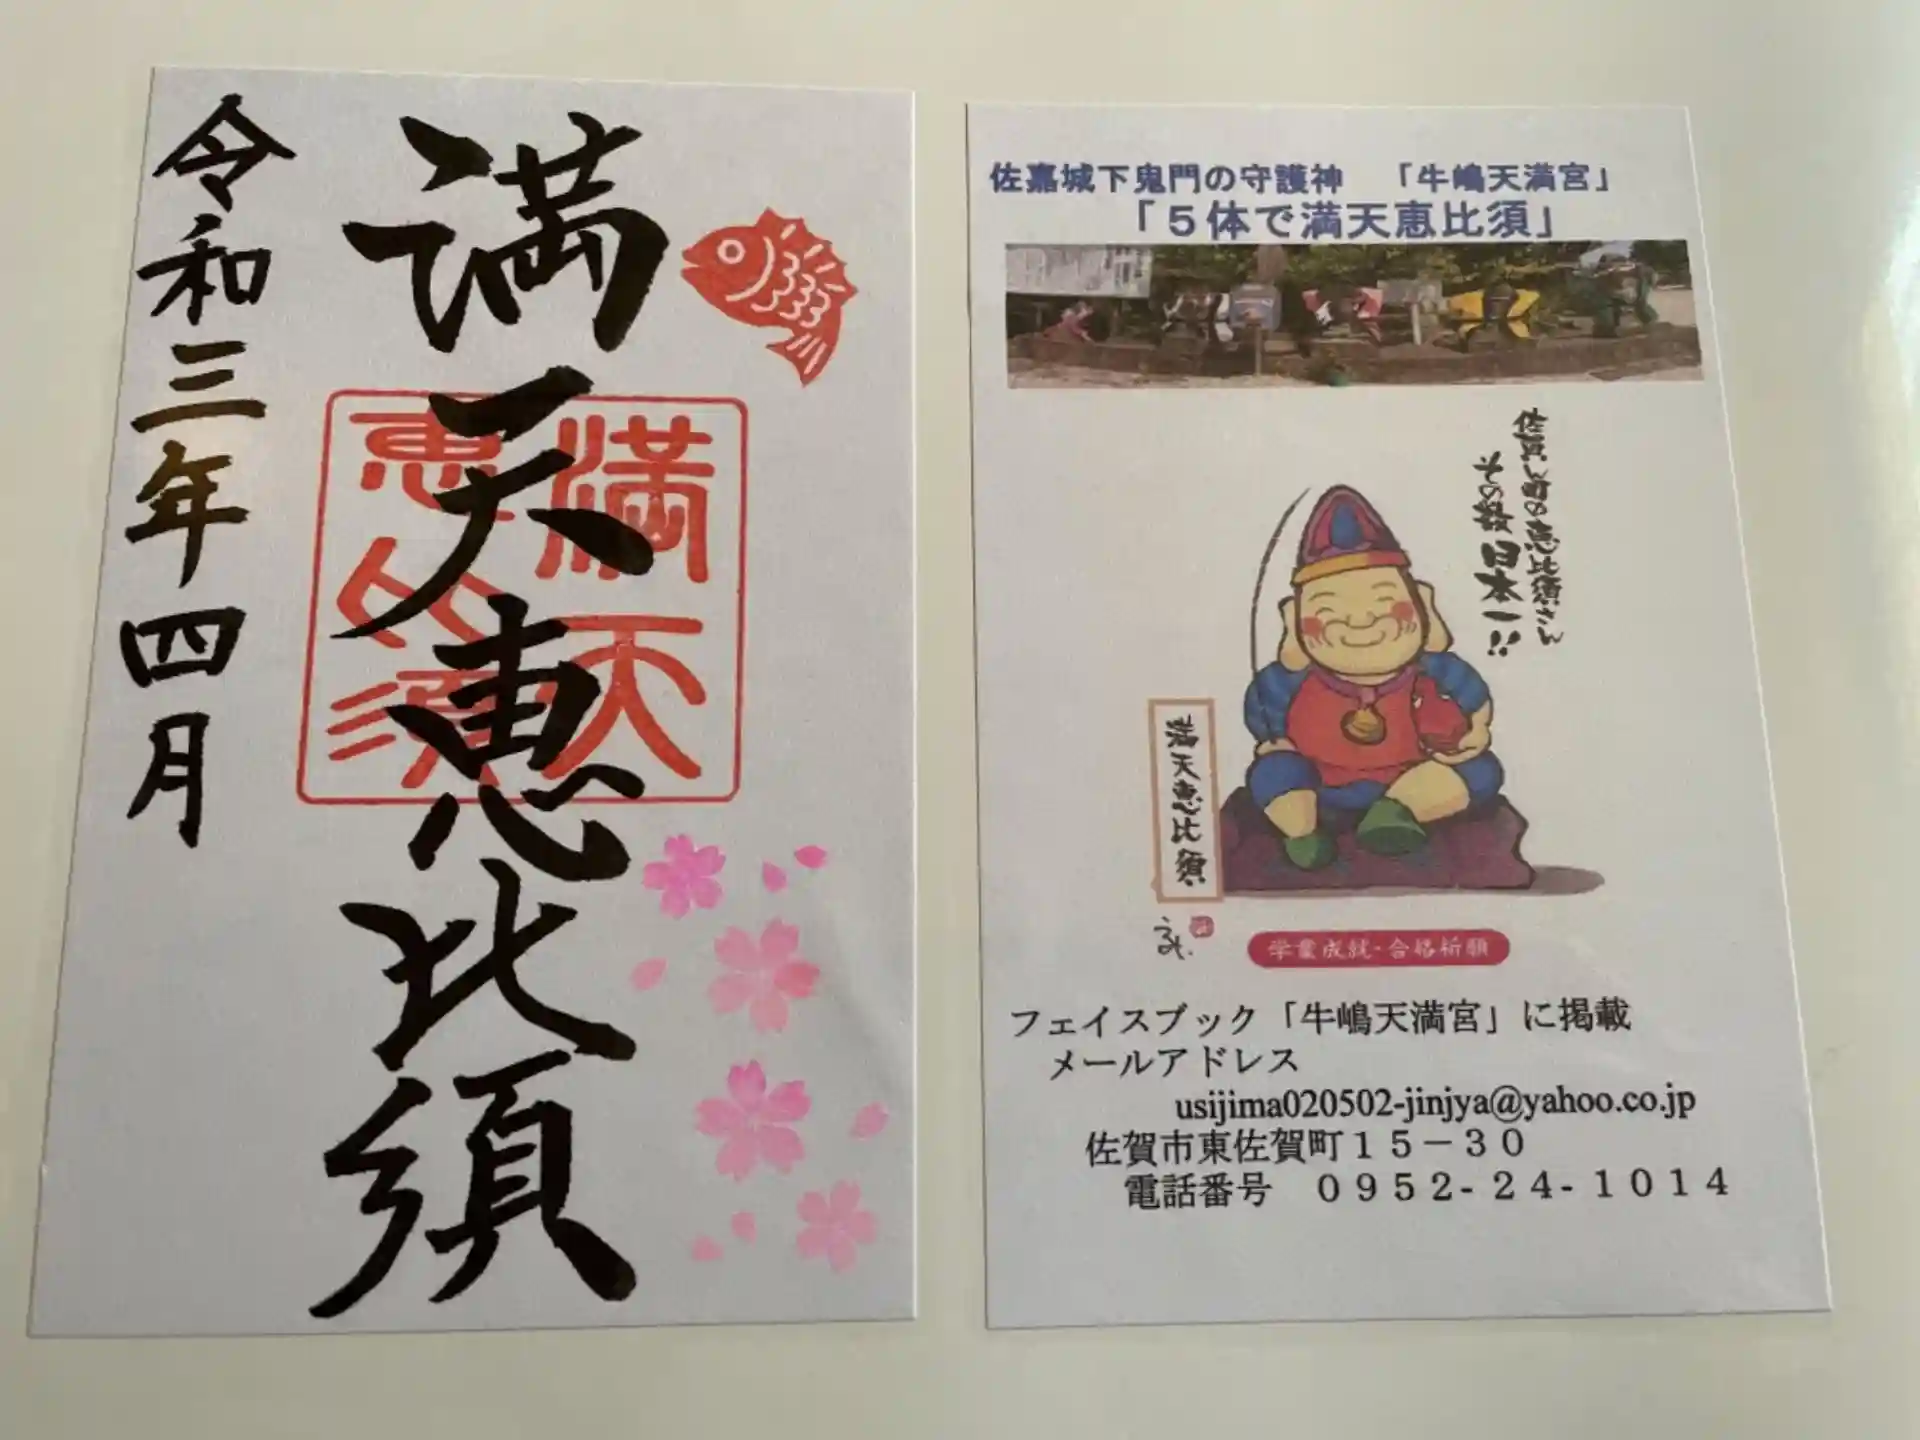 満天恵比須
令和三年四月
満天
恵比須
佐嘉城下鬼門の守護神 「牛嶋天満宮」
「5体で満天恵比須」
佐賀ん町の恵比須さん
その数日本一!!
満天恵比須
学業成就・合格祈願
フェイスブック「牛嶋天満宮」に掲載
メールアドレス
usijima020502-jinjya@yahoo.co.jp
佐賀市東佐賀町15-30
電話番号 0952-24-1014